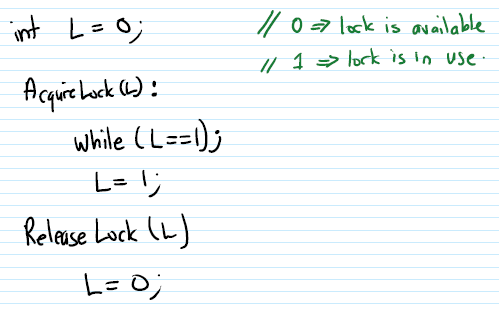 int L = 0; // 0 ⇒ lock is available
// 1 ⇒ lock is in use.
Acquire Lock (L) :
while (L==1);
L = 1;
Release Lock (L)
L = 0;